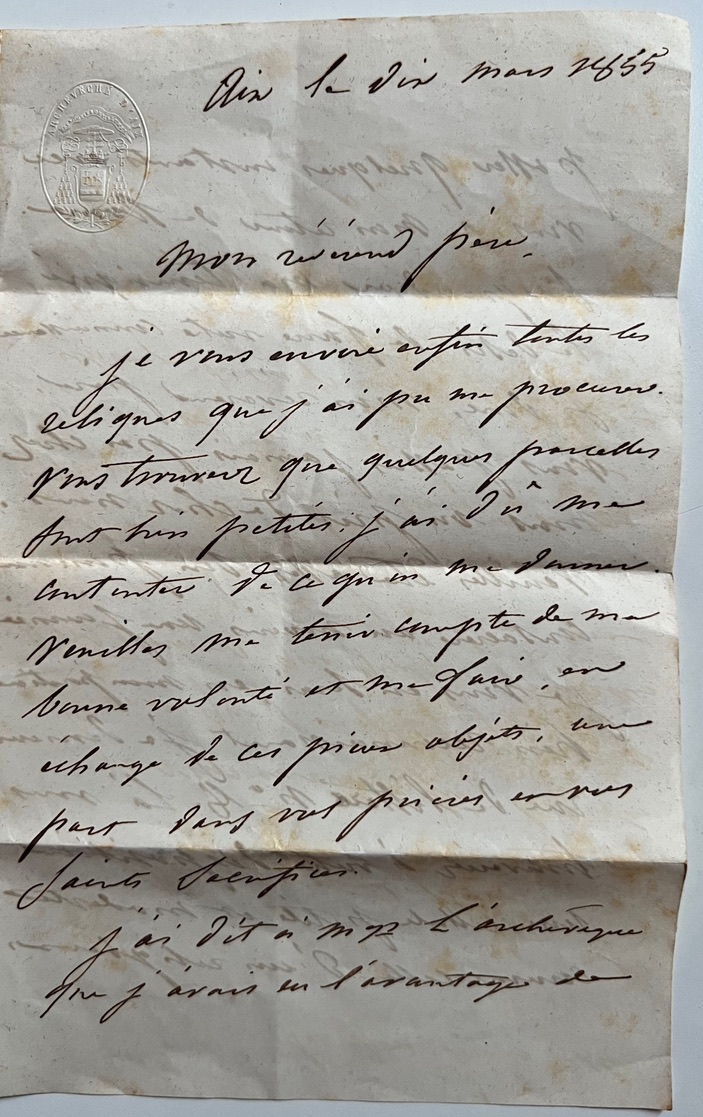 ARCHEVÊCHÉ D'AIX
Aix le dix mars 1855
Mon révérend père,
je vous envoie enfin toutes les
reliques que j'ai pu me procurer.
vous trouverez que quelques parcelles
sont bien petites. j'ai dû me
contenter de ce qu'on me donner.
veuillez me tenir compte de ma
bonne volonté et me faire, en
échange de ces pieux objets, une
part dans vos prières et vos
Saints Sacrifices.
j'ai dit à mgr L'archevêque
que j'avais eu l'avantage de